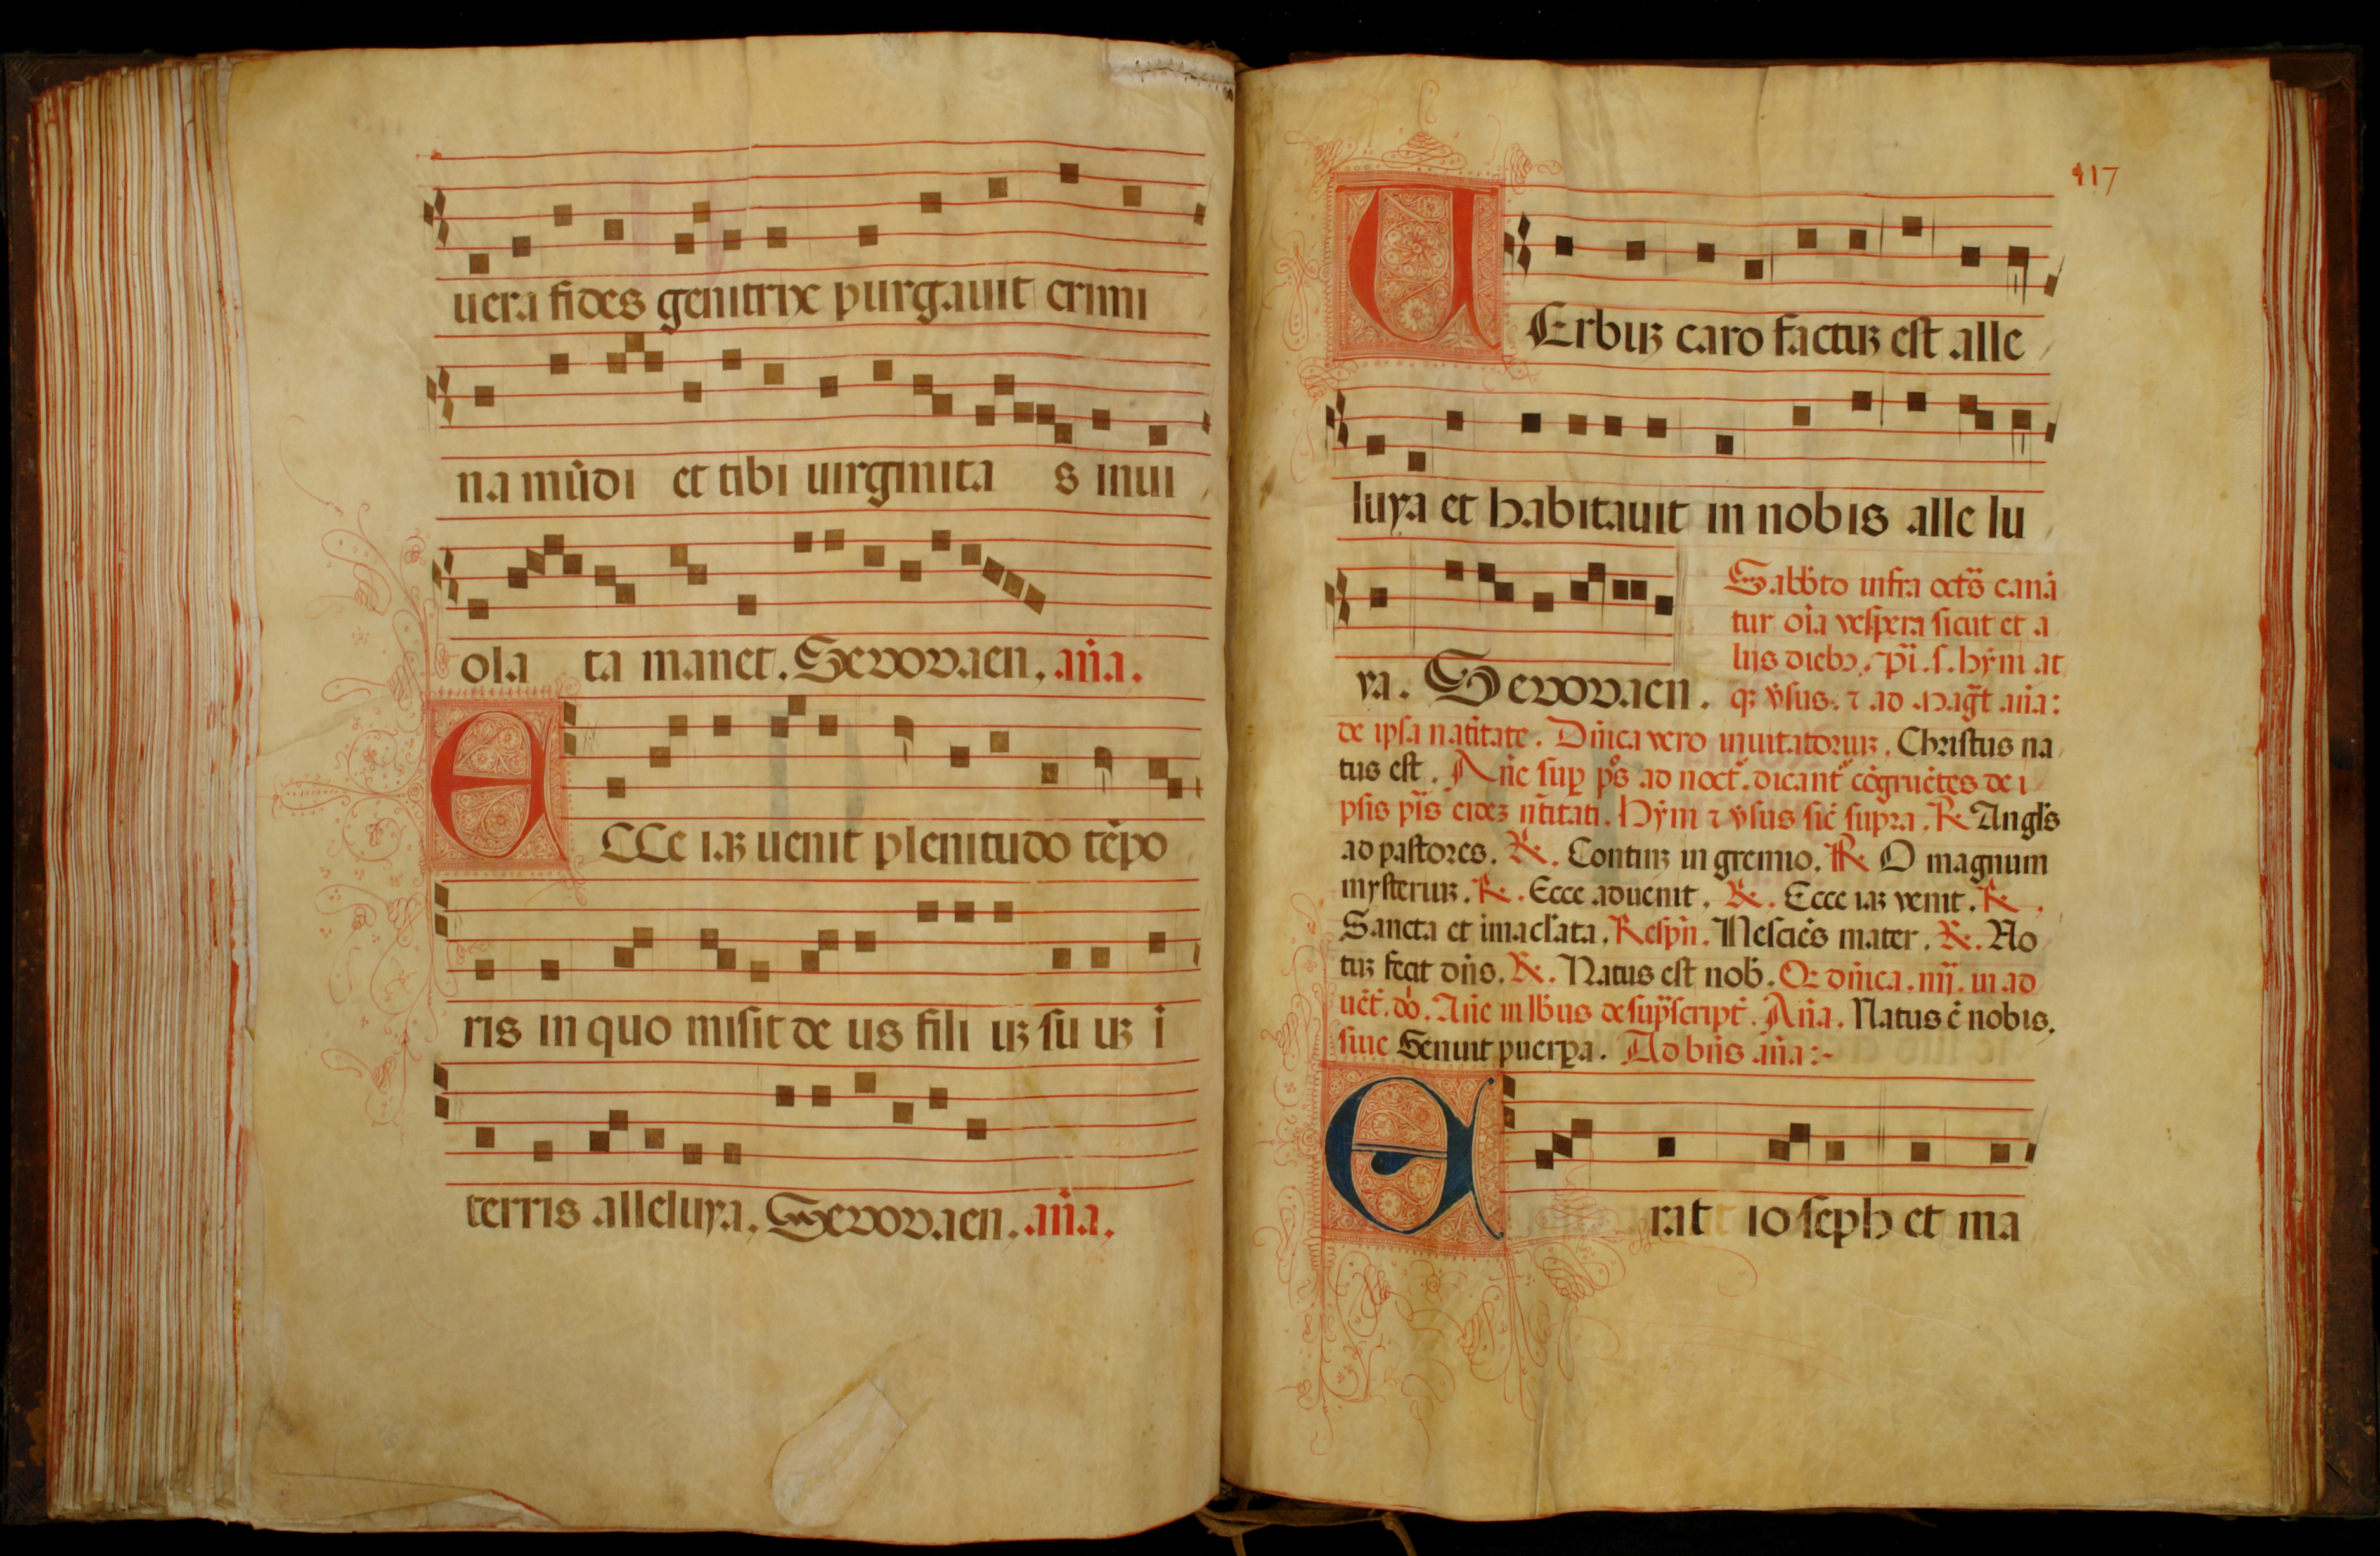 uera fides genitrix purgauit crimi
na mūdi et tibi uirginita s inui
ola ta manet. Seuouaen. an̄a.
ECCe iaꝫ uenit plenitudo tēpo
ris in quo misit de us fili uꝫ su uꝫ i
terris alleluya. Seuouaen. an̄a.
117
UErbuꝫ caro factuꝫ est alle
luya et habitauit in nobis alle lu
ya. Seuouaen.
Sabb̄to infra oct̄s canā
tur oīa vespera sicut et a
lijs diebꝫ. hȳm at
qꝫ v̄sus. ⁊ ad maḡt an̄a:
de ipsa natītate. Dn̄ica vero inuitatoriuꝫ. Christus na
tus est. An̄e sup ps̄ ad noct̄. dicant̄ cōgruētes de i
psis eideꝫ Hȳm ⁊ v̄sus sic̄ supra. ℟ Angl̄s
ad pastores. ℟. Contīnꝫ in gremio. ℟ O magnum
mysteriuꝫ. ℟. Ecce aduenit. ℟. Ecce iaꝫ venit. ℟.
Sancta et imacl̄ata. Respn̄. Nesciēs mater. ℟. No
tuꝫ fecit dn̄s. ℟. Natus est nob̄. dn̄ica. iiij. in ad
uēt̄. dō. An̄e in lb̄us desup̄script̄. An̄a. Natus ē nobis.
siue Genuit puerpa. Ad bn̄s an̄a:-
Erat ioseph et ma